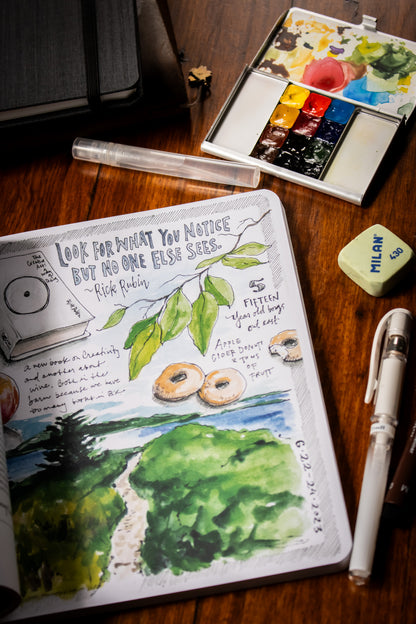 LOOK FOR WHAT YOU NOTICE
BUT NO ONE ELSE SEES.
~Rick Rubin
The
Creative
Act
a Way of
Being
Rick Rubin
5
FIFTEEN
~year old boys
out east
APPLE
CIDER DONUTS
& TONS
OF
FRUIT
a new book on creativity
and another about
wine. Both in the
barn because we have
too many books in
6·22-24·2023
MILAN
430